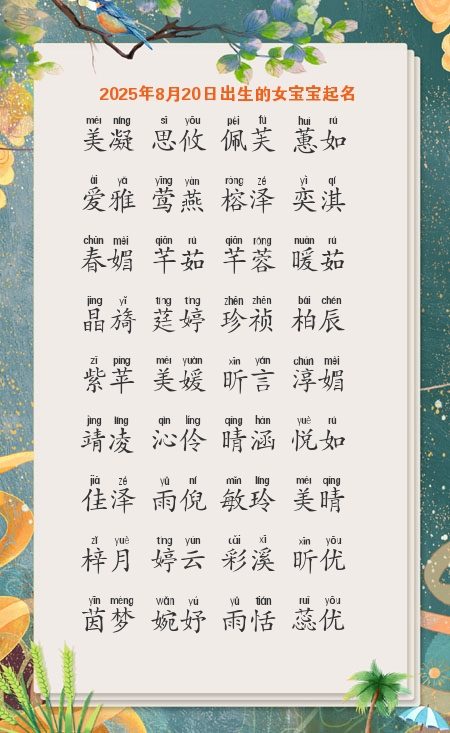 2025年8月20日出生的女宝宝起名
měi níng sī yōu pèi fú huì rú
美凝 思攸 佩芙 蕙如
ài yǎ yīng yàn róng zé yì qí
爱雅 莺燕 榕泽 奕淇
chūn mèi qiān rú qiān róng nuǎn rú
春媚 芊茹 芊蓉 暖茹
jīng yǐ tíng tíng zhēn zhēn bǎi chén
晶旖 莛婷 珍祯 柏辰
zǐ píng měi yuàn xīn yán chún mèi
紫苹 美媛 昕言 淳媚
jìng líng qìn líng qíng hán yuè rú
靖凌 沁伶 晴涵 悦如
jiā zé yǔ ní mǐn líng měi qíng
佳泽 雨倪 敏玲 美晴
zǐ yuè tíng yún cǎi xī xīn yōu
梓月 婷云 彩溪 昕优
yīn mèng wǎn yú yǔ tián ruǐ yōu
茵梦 婉妤 雨恬 蕊优